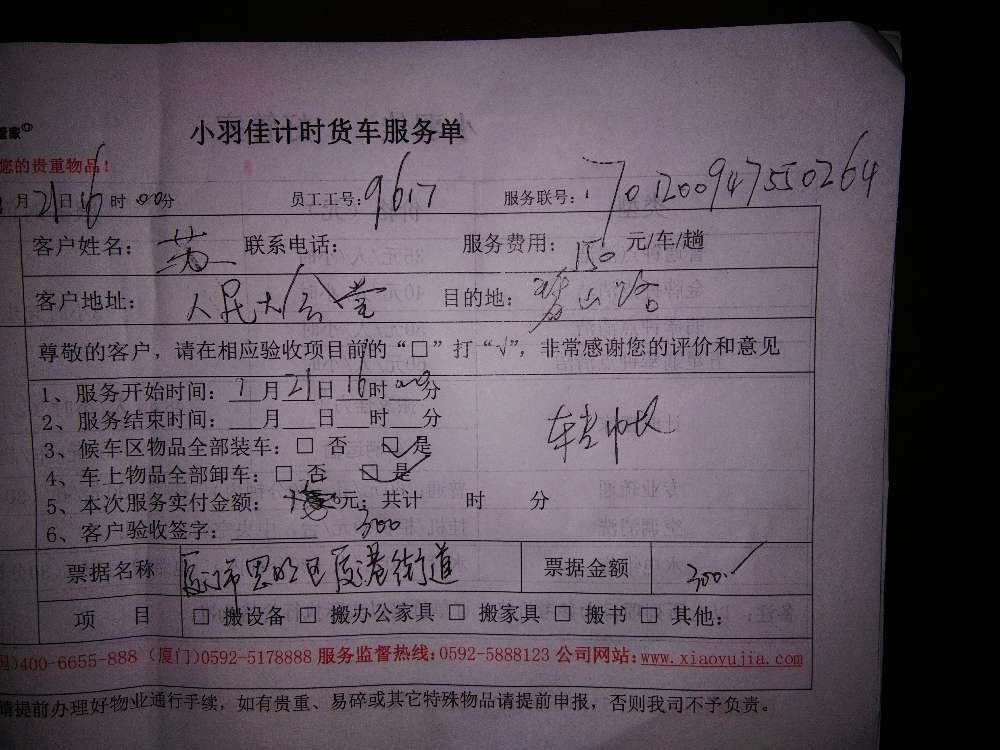 小羽佳计时货车服务单
您的贵重物品！
月21日16时00分 员工工号：9617 服务联号：701200947550264
客户姓名： 联系电话： 服务费用：150元/车/趟
客户地址：人民大会堂 目的地：
尊敬的客户，请在相应验收项目前的“□”打“√”，非常感谢您的评价和意见
1、服务开始时间：7月21日16时00分
2、服务结束时间：___月___日___时___分
3、候车区物品全部装车：□ 否 ☑ 是
4、车上物品全部卸车：□ 否 ☑ 是
5、本次服务实付金额： 元；共计 时 分
300
6、客户验收签字：
票据名称 厦门市思明区厦港街道 票据金额 300.
项 目 □ 搬设备 □ 搬办公家具 □ 搬家具 □ 搬书 □ 其他：
)400-6655-888（厦门)0592-5178888 服务监督热线：0592-5888123 公司网站：www.xiaoyujia.com
请提前办理好物业通行手续，如有贵重、易碎或其它特殊物品请提前申报，否则我司不予负责。